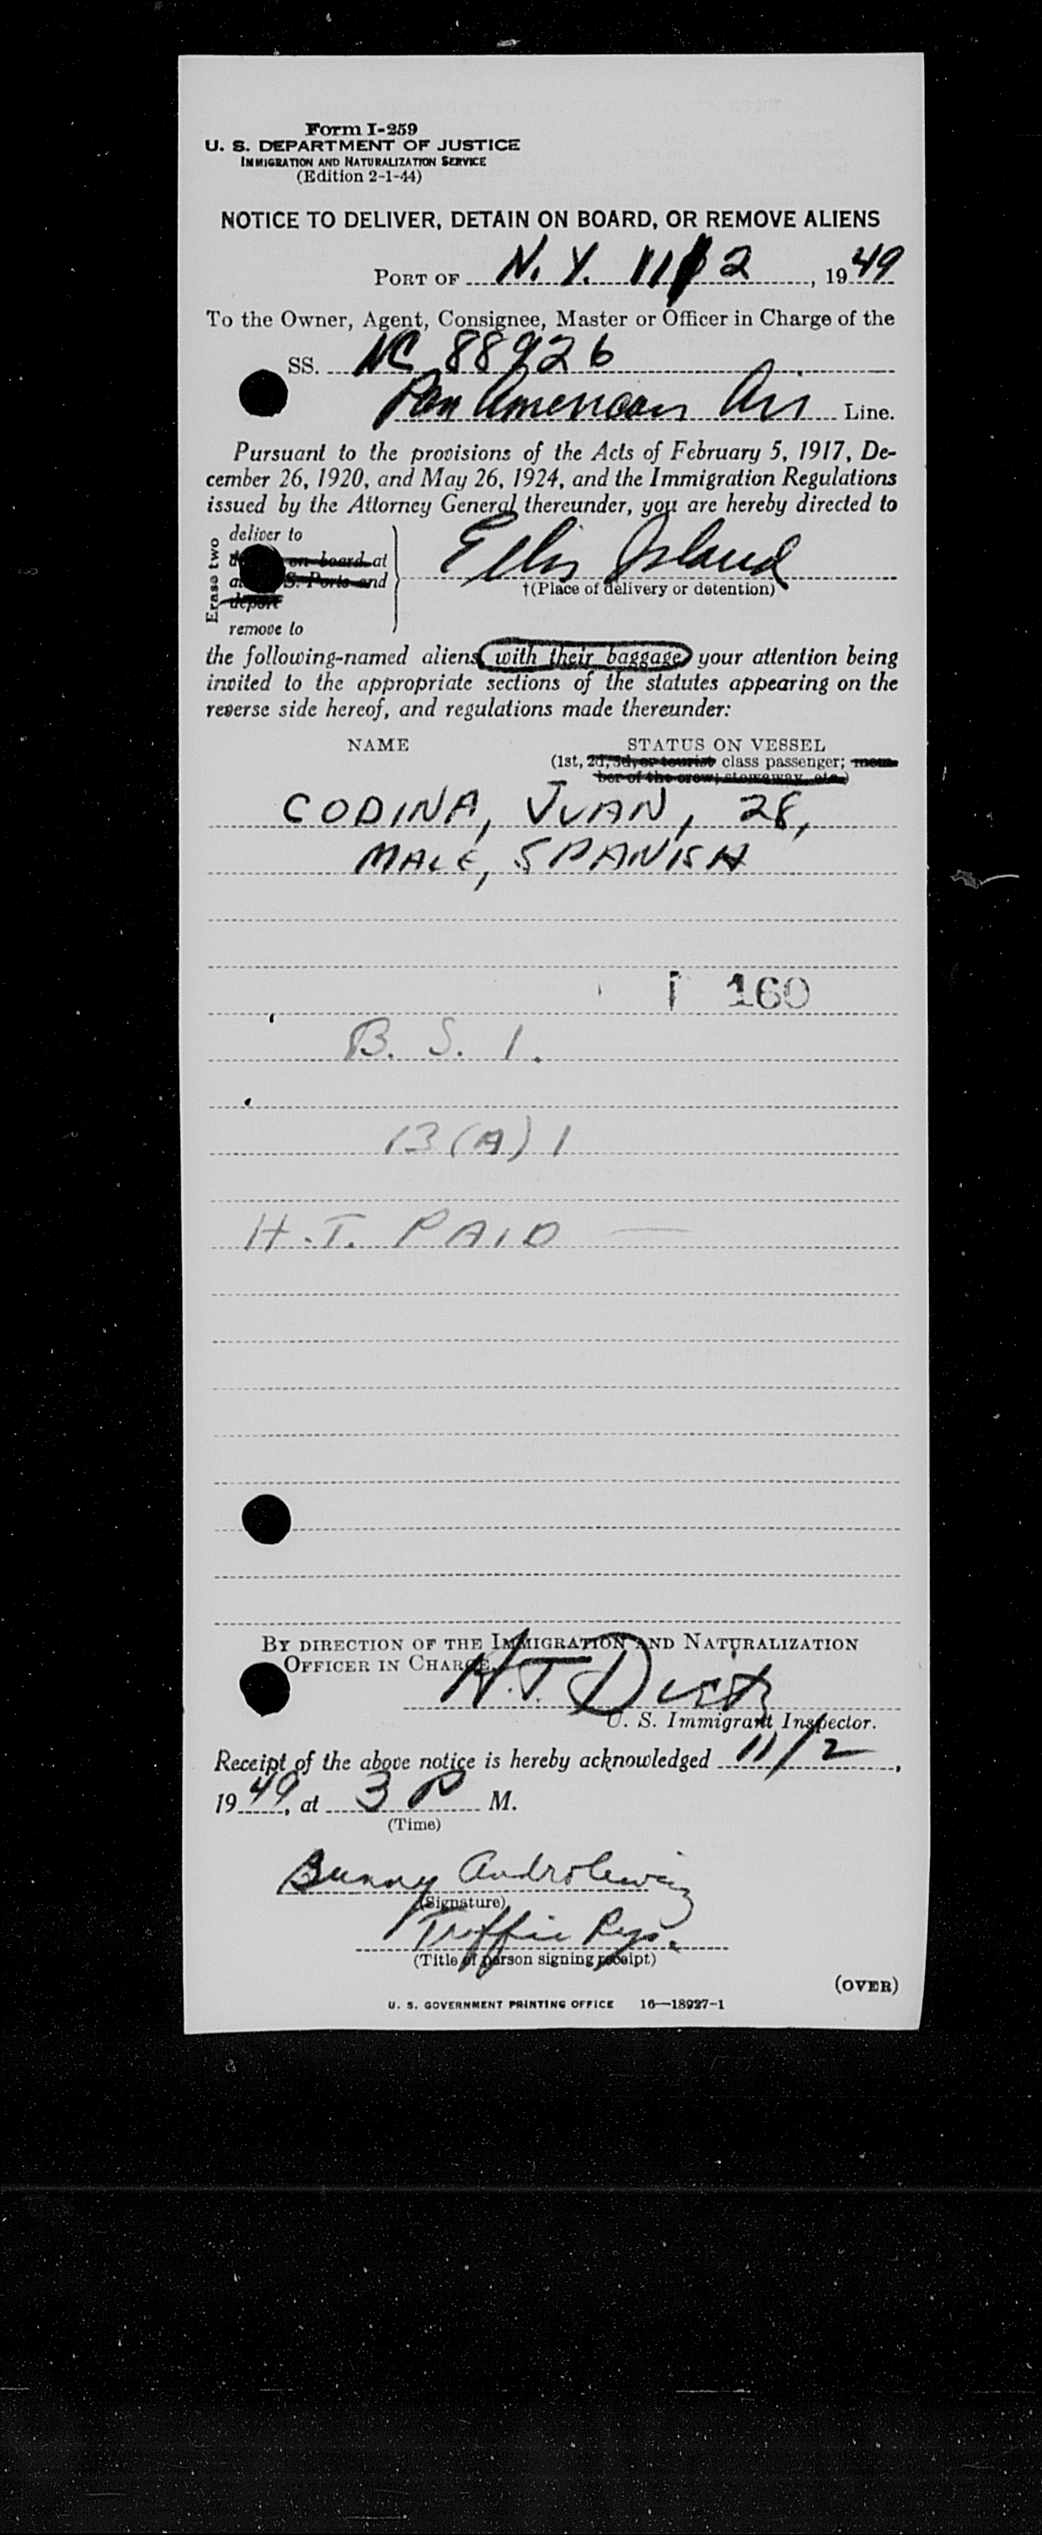 Form I-259
U. S. DEPARTMENT OF JUSTICE
IMMIGRATION AND NATURALIZATION SERVICE
(Edition 2-1-44)
NOTICE TO DELIVER, DETAIN ON BOARD, OR REMOVE ALIENS
PORT OF N. Y. 11/2, 1949
To the Owner, Agent, Consignee, Master or Officer in Charge of the
SS. NC 88926
Pan American Air Line.
Pursuant to the provisions of the Acts of February 5, 1917, De-
cember 26, 1920, and May 26, 1924, and the Immigration Regulations
issued by the Attorney General thereunder, you are hereby directed to
Erase two
deliver to
on board at
S. Ports and
deport
remove to
Ellis Island
†(Place of delivery or detention)
the following-named aliens with their baggage your attention being
invited to the appropriate sections of the statutes appearing on the
reverse side hereof, and regulations made thereunder:
NAME STATUS ON VESSEL
(1st, 2d, 3d, or tourist class passenger; mem-
ber of the crew; stowaway, etc.)
CODINA, JUAN, 28,
MALE, SPANISH
160
B. S. I.
13(A) 1
H.T. PAID —
BY DIRECTION OF THE IMMIGRATION AND NATURALIZATION
OFFICER IN CHARGE,
H.T.
U. S. Immigrant Inspector.
Receipt of the above notice is hereby acknowledged 11/2,
1949, at 3 P M.
(Time)
Bunny
(Signature)
Traffic Rep.
(Title of person signing receipt)
(OVER)
U. S. GOVERNMENT PRINTING OFFICE 16—18927-1